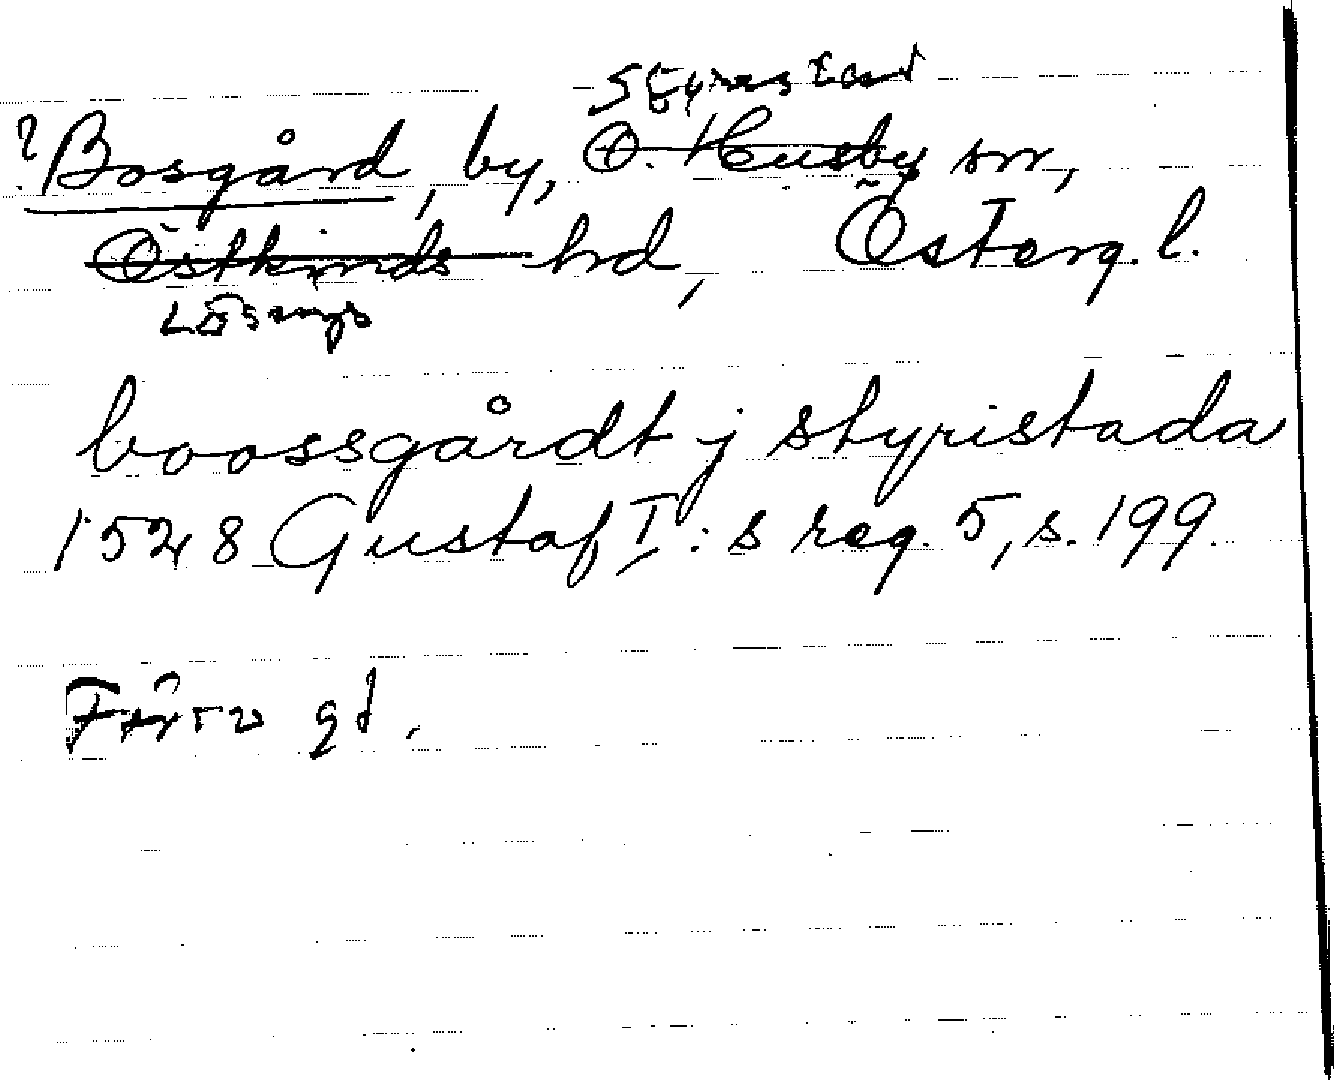 Styrestad
? Bosgård, by, Ö. Husby sn,
Östkinds hd, Österg. l.
Lösings
boossgårdt j styristada
1528 Gustaf I:s reg. 5, s. 199.
gd.